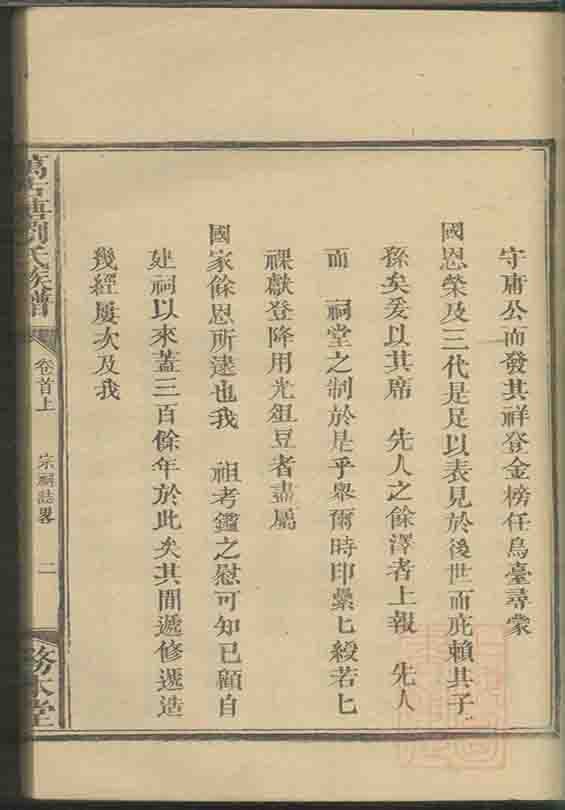 守庸公而發其祥登金榜任烏臺尋蒙
國恩榮及三代是足以表見於後世而庇賴其子
孫矣爰以其席 先人之餘澤者上報 先人
而 祠堂之制於是乎舉爾時印纍匕綬若匕
祼獻登降用光俎豆者盡屬
國家餘恩所逮也我 祖考鑑之慰可知已顧自
建祠以來蓋三百餘年於此矣其間遞修遞造
幾經屢次及我
萬古塘劉氏族譜 卷首上 宗祠誌畧 二 務本堂